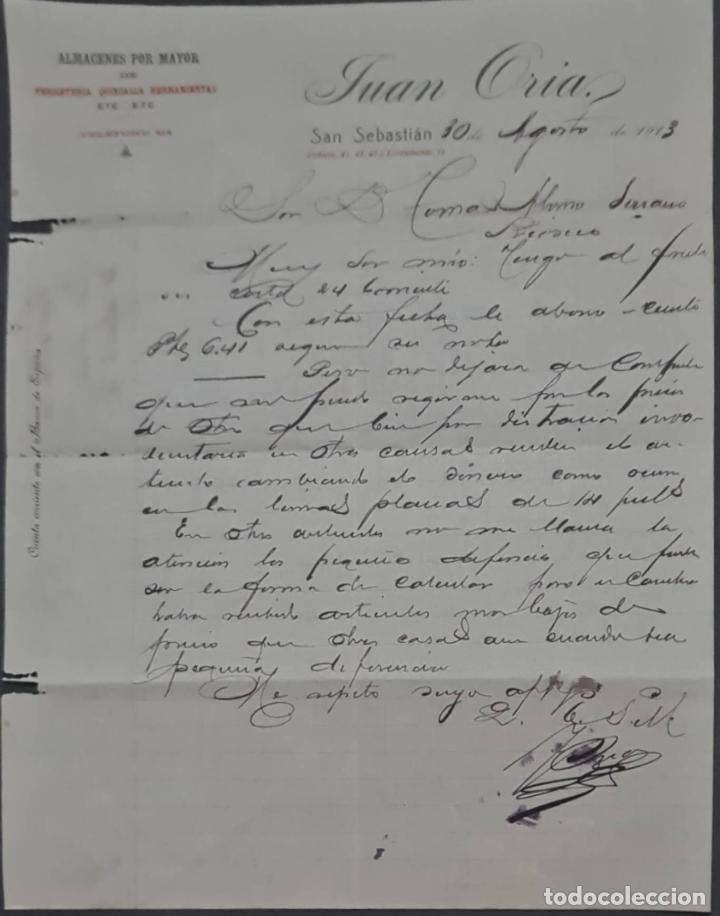 ALMACENES POR MAYOR
DE
FERRETERIA QUINCALLA HERRAMIENTAS
ETC ETC
Juan Oria
San Sebastián 30 de Agosto de 1913
Cuenta corriente en el Banco de España
Sor D Tomas Alonso Serrano
Rioseco
Muy Sor mio: Tengo al frente
carta 24 corriente
Con esta fecha le abono cuenta
Ptas 6.41 segun su nota
Pero no dejara de comprender
que no puedo regirme por los precios
de otro que bien por distraccion invo-
luntaria u otras causas venden el ar-
ticulo cambiando el dinero como ocurre
en las limas planas de 14 pulg
En otros articulos no me llama la
atencion las pequeñas diferencias que puede
ser la forma de calcular pero en cambio
habra recibido articulos mas bajos de
precio que otras casas aun cuando sea
pequeña diferencia
Me repito suyo
Q. B. S. M
Oria
todocoleccion
todocoleccion.net